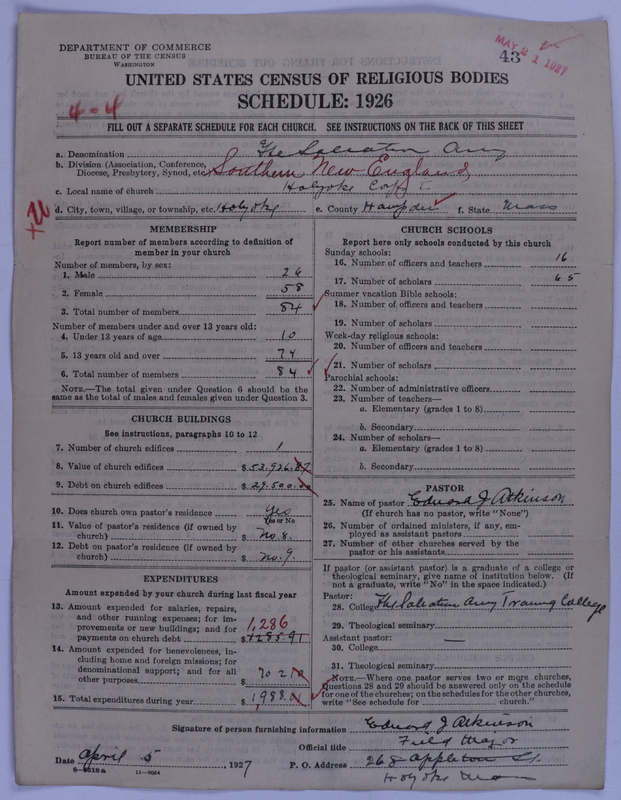 DEPARTMENT OF COMMERCE
BUREAU OF THE CENSUS
WASHINGTON
43
MAY 21 1927
UNITED STATES CENSUS OF RELIGIOUS BODIES
SCHEDULE: 1926
4-4
FILL OUT A SEPARATE SCHEDULE FOR EACH CHURCH. SEE INSTRUCTIONS ON THE BACK OF THIS SHEET
a. Denomination The Salvation Army
b. Division (Association, Conference, Diocese, Presbytery, Synod, etc. Southern New England
c. Local name of church Holyoke Corps
d. City, town, village, or township, etc. Holyoke e. County Hampden f. State Mass
MEMBERSHIP
Report number of members according to definition of
member in your church
Number of members, by sex:
1. Male 26
2. Female 58
3. Total number of members 84
Number of members under and over 13 years old:
4. Under 13 years of age 10
5. 13 years old and over 74
6. Total number of members 84
NOTE.—The total given under Question 6 should be the
same as the total of males and females given under Question 3.
CHURCH BUILDINGS
See instructions, paragraphs 10 to 12
7. Number of church edifices 1
8. Value of church edifices $53,926.87
9. Debt on church edifices $29,500.00
10. Does church own pastor's residence? Yes
Yes or No
11. Value of pastor's residence (if owned by
church) $ No. 8.
12. Debt on pastor's residence (if owned by
church) $ No. 9.
EXPENDITURES
Amount expended by your church during last fiscal year
13. Amount expended for salaries, repairs,
and other running expenses; for im-
provements or new buildings; and for 1,286
payments on church debt $1285.91
14. Amount expended for benevolences, in-
cluding home and foreign missions; for
denominational support; and for all
other purposes $ 702
15. Total expenditures during year $1,988.01
CHURCH SCHOOLS
Report here only schools conducted by this church
Sunday schools:
16. Number of officers and teachers 16
17. Number of scholars 65
Summer vacation Bible schools:
18. Number of officers and teachers
19. Number of scholars
Week-day religious schools:
20. Number of officers and teachers
21. Number of scholars
Parochial schools:
22. Number of administrative officers
23. Number of teachers—
a. Elementary (grades 1 to 8)
b. Secondary
24. Number of scholars—
a. Elementary (grades 1 to 8)
b. Secondary
PASTOR
25. Name of pastor Edward J Atkinson
(If church has no pastor, write "None")
26. Number of ordained ministers, if any, em-
ployed as assistant pastors
27. Number of other churches served by the
pastor or his assistants
If pastor (or assistant pastor) is a graduate of a college or
theological seminary, give name of institution below. (If
not a graduate, write "No" in the space indicated.)
Pastor:
28. College The Salvation Army Training College
29. Theological seminary
Assistant pastor: —
30. College
31. Theological seminary
NOTE.—Where one pastor serves two or more churches,
Questions 28 and 29 should be answered only on the schedule
for one of the churches; on the schedules for the other churches,
write "See schedule for church."
Signature of person furnishing information Edward J Atkinson
Official title Field Major
Date April 5 1927 P. O. Address 268 Appleton St.
Holyoke Mass
8-5518a 11-9054